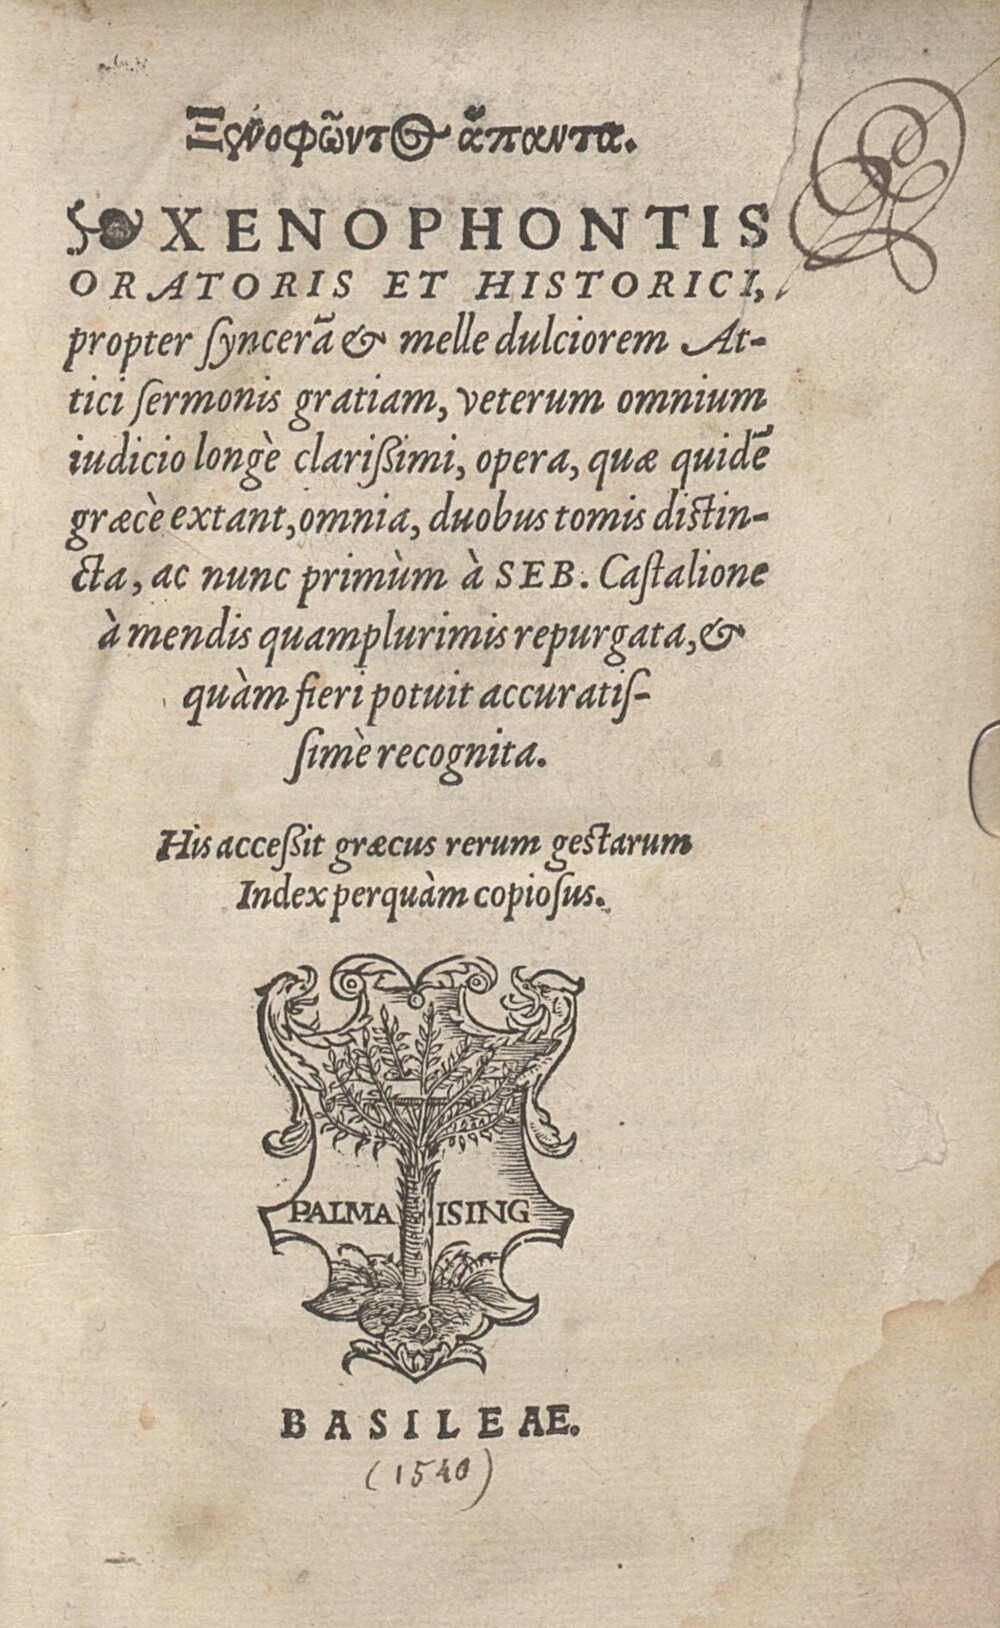 Ξενοφῶντος ἅπαντα.
XENOPHONTIS
ORATORIS ET HISTORICI,
propter syncerã & melle dulciorem At-
tici sermonis gratiam, veterum omnium
iudicio longè clarißimi, opera, quæ quidẽ
græcè extant, omnia, duobus tomis distin-
cta, ac nunc primùm à SEB. Castalione
à mendis quamplurimis repurgata, &
quàm fieri potuit accuratis-
simè recognita.
His acceßit græcus rerum gestarum
Index perquàm copiosus.
PALMA ISING
BASILEAE.
(1540)